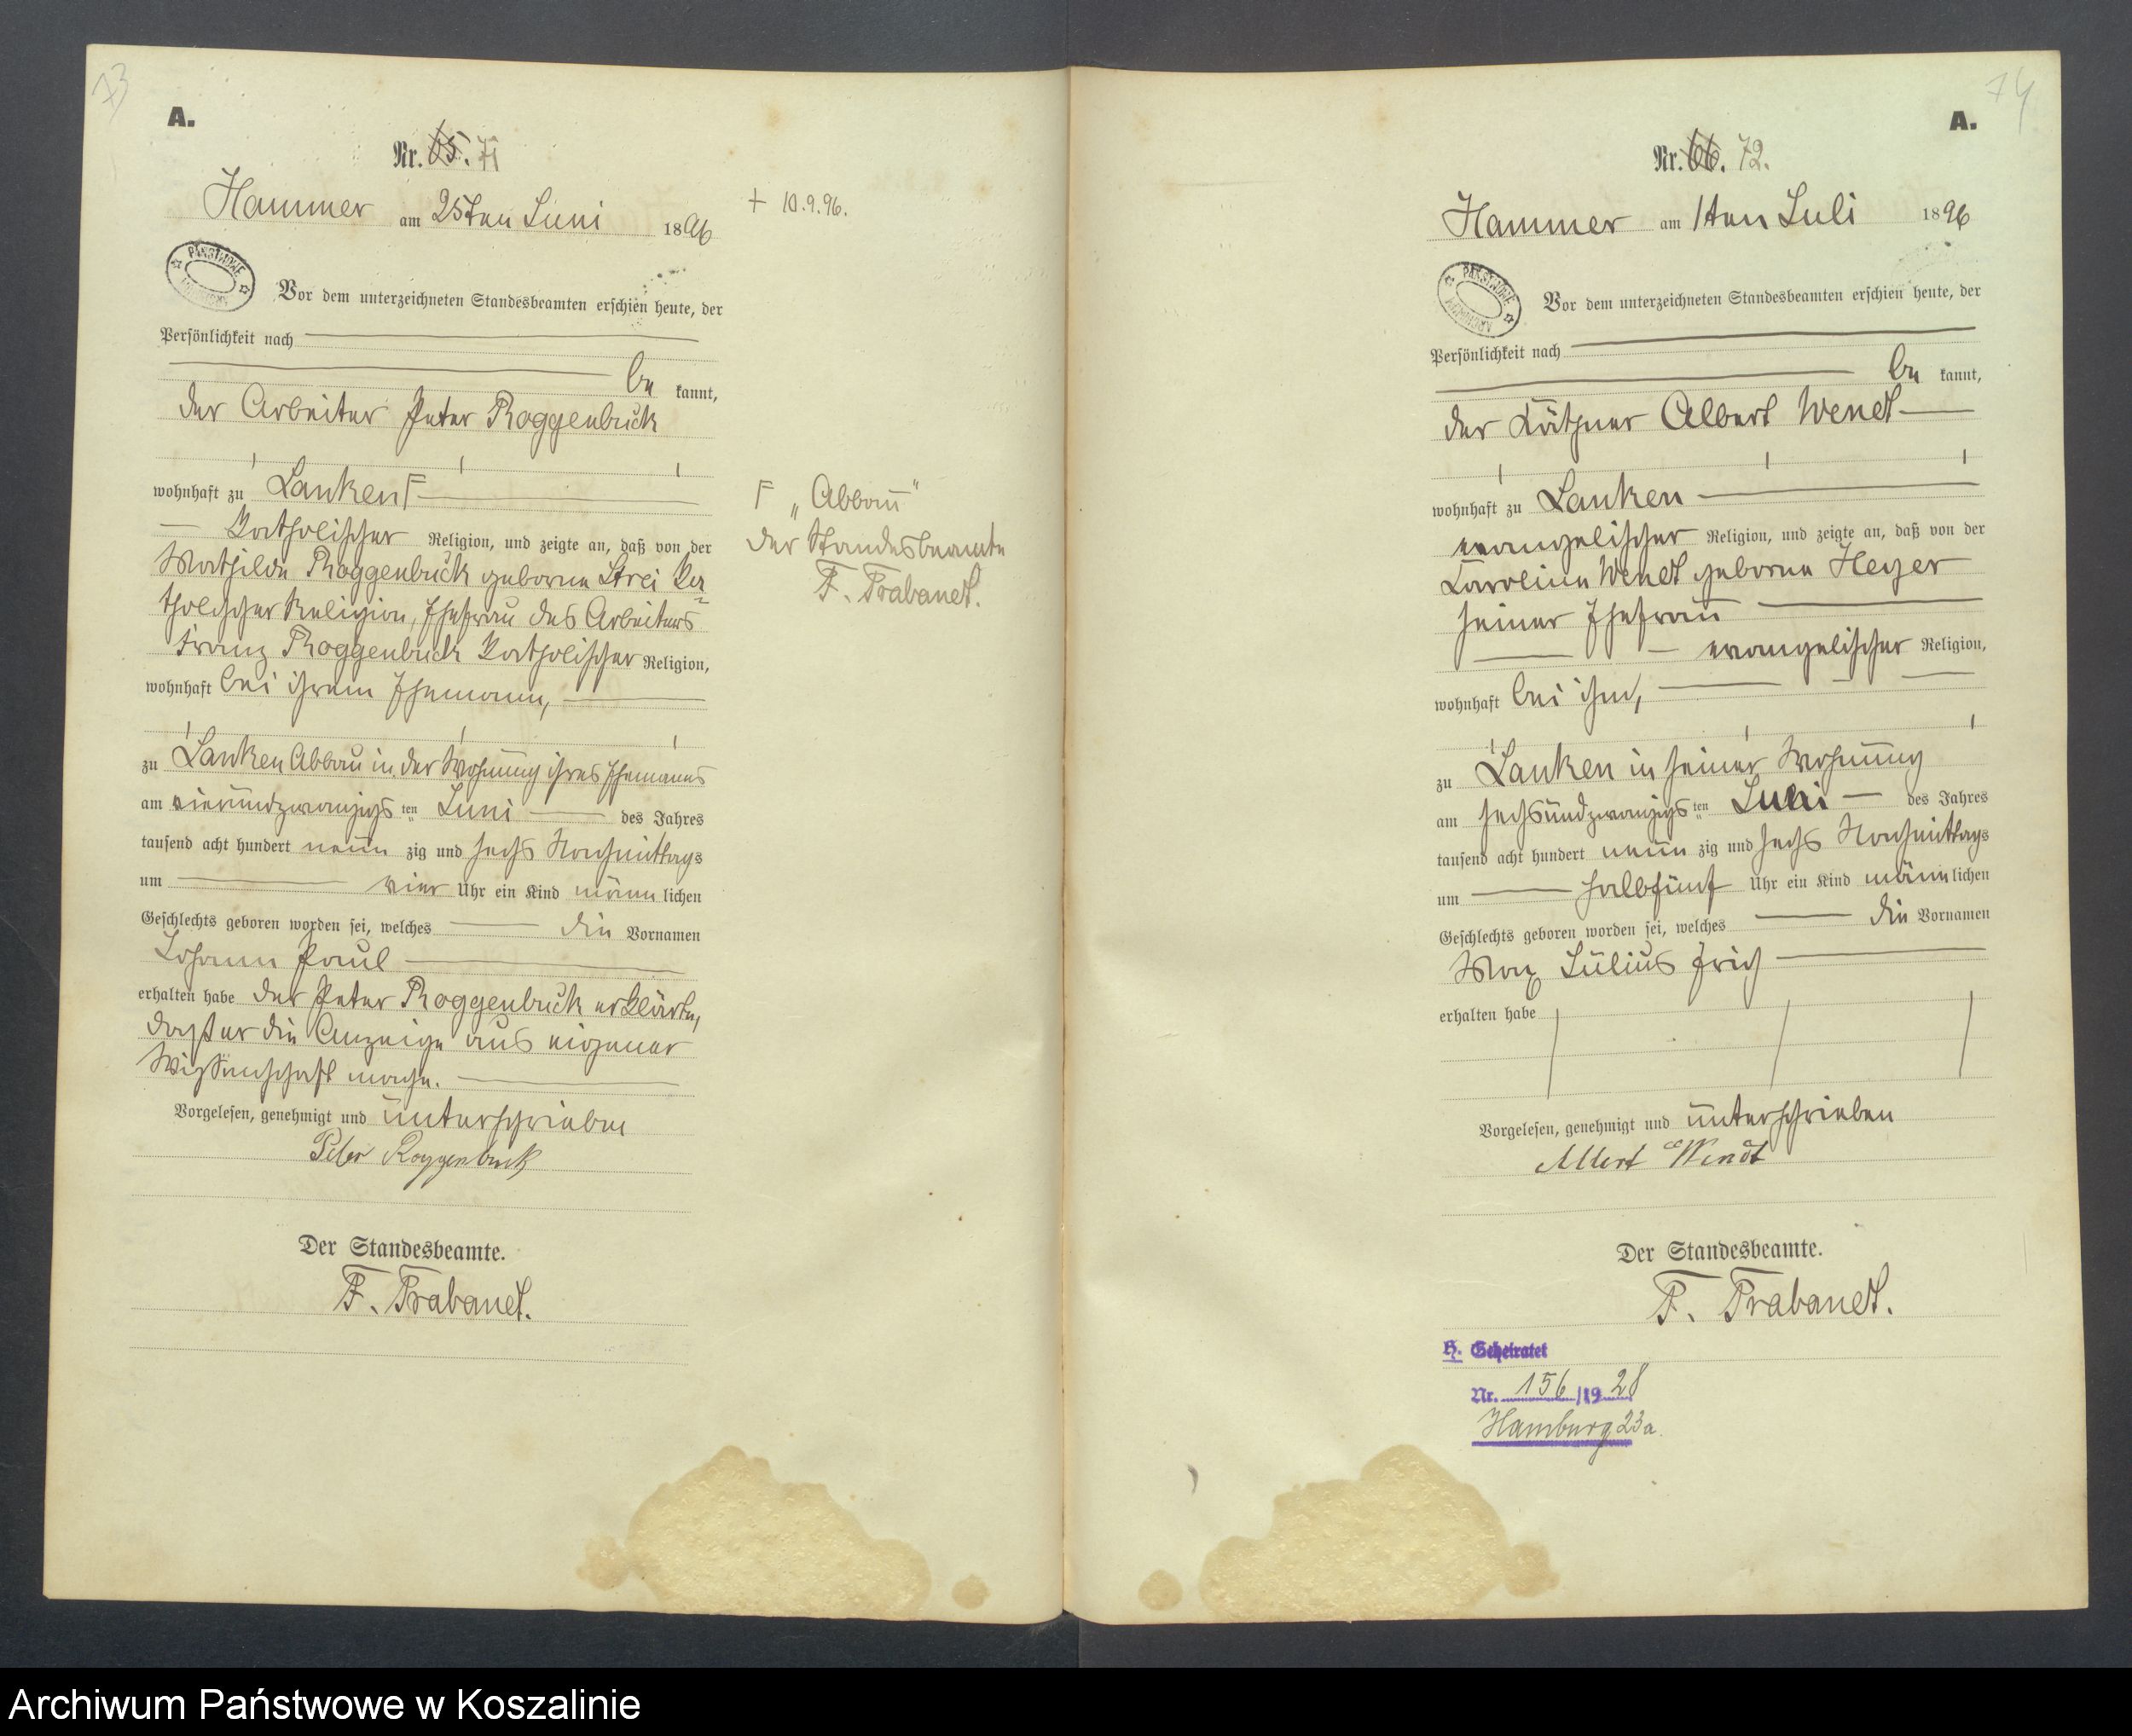 73
A.
Nr. 65. 71
Hammer am 25ten Juni 1896
PAŃSTWOWE ARCHIWUM
Vor dem unterzeichneten Standesbeamten erschien heute, der
Persönlichkeit nach
be kannt,
der Arbeiter Peter Roggenbuck
wohnhaft zu Lanken Γ
katholischer Religion, und zeigte an, daß von der
Mathilde Roggenbuck geborne Strei ka=
tholischer Religion, Ehefrau des Arbeiters
Franz Roggenbuck katholischer Religion,
wohnhaft bei ihrem Ehemann,
zu Lanken Abbau in der Wohnung ihres Ehemanns
am vierundzwanzigs ten Juni des Jahres
tausend acht hundert neun zig und sechs Nachmittags
um vier Uhr ein Kind männ lichen
Geschlechts geboren worden sei, welches die Vornamen
Johann Paul
erhalten habe der Peter Roggenbuck erklärte,
daß er die Anzeige aus eigener
Wissenschaft mache.
Vorgelesen, genehmigt und unterschrieben
Peter Roggenbuck
Der Standesbeamte.
F. Trabandt.
+ 10.9.96.
Γ „Abbau"
der Standesbeamte
F. Trabandt.
74
A.
Nr. 66. 72.
Hammer am 1ten Juli 1896
PAŃSTWOWE ARCHIWUM
Vor dem unterzeichneten Standesbeamten erschien heute, der
Persönlichkeit nach
be kannt,
der Käthner Albert Wendt
wohnhaft zu Lanken
evangelischer Religion, und zeigte an, daß von der
Karoline Wendt geborne Heyer
seiner Ehefrau
evangelischer Religion,
wohnhaft bei ihm,
zu Lanken in seiner Wohnung
am sechsundzwanzigs ten Juni des Jahres
tausend acht hundert neun zig und sechs Nachmittags
um halbfünf Uhr ein Kind männ lichen
Geschlechts geboren worden sei, welches die Vornamen
Max Julius Erich
erhalten habe
Vorgelesen, genehmigt und unterschrieben
Albert Wendt
Der Standesbeamte.
F. Trabandt.
H. Geheiratet
Nr. 156/1928
Hamburg 23a.
Archiwum Państwowe w Koszalinie